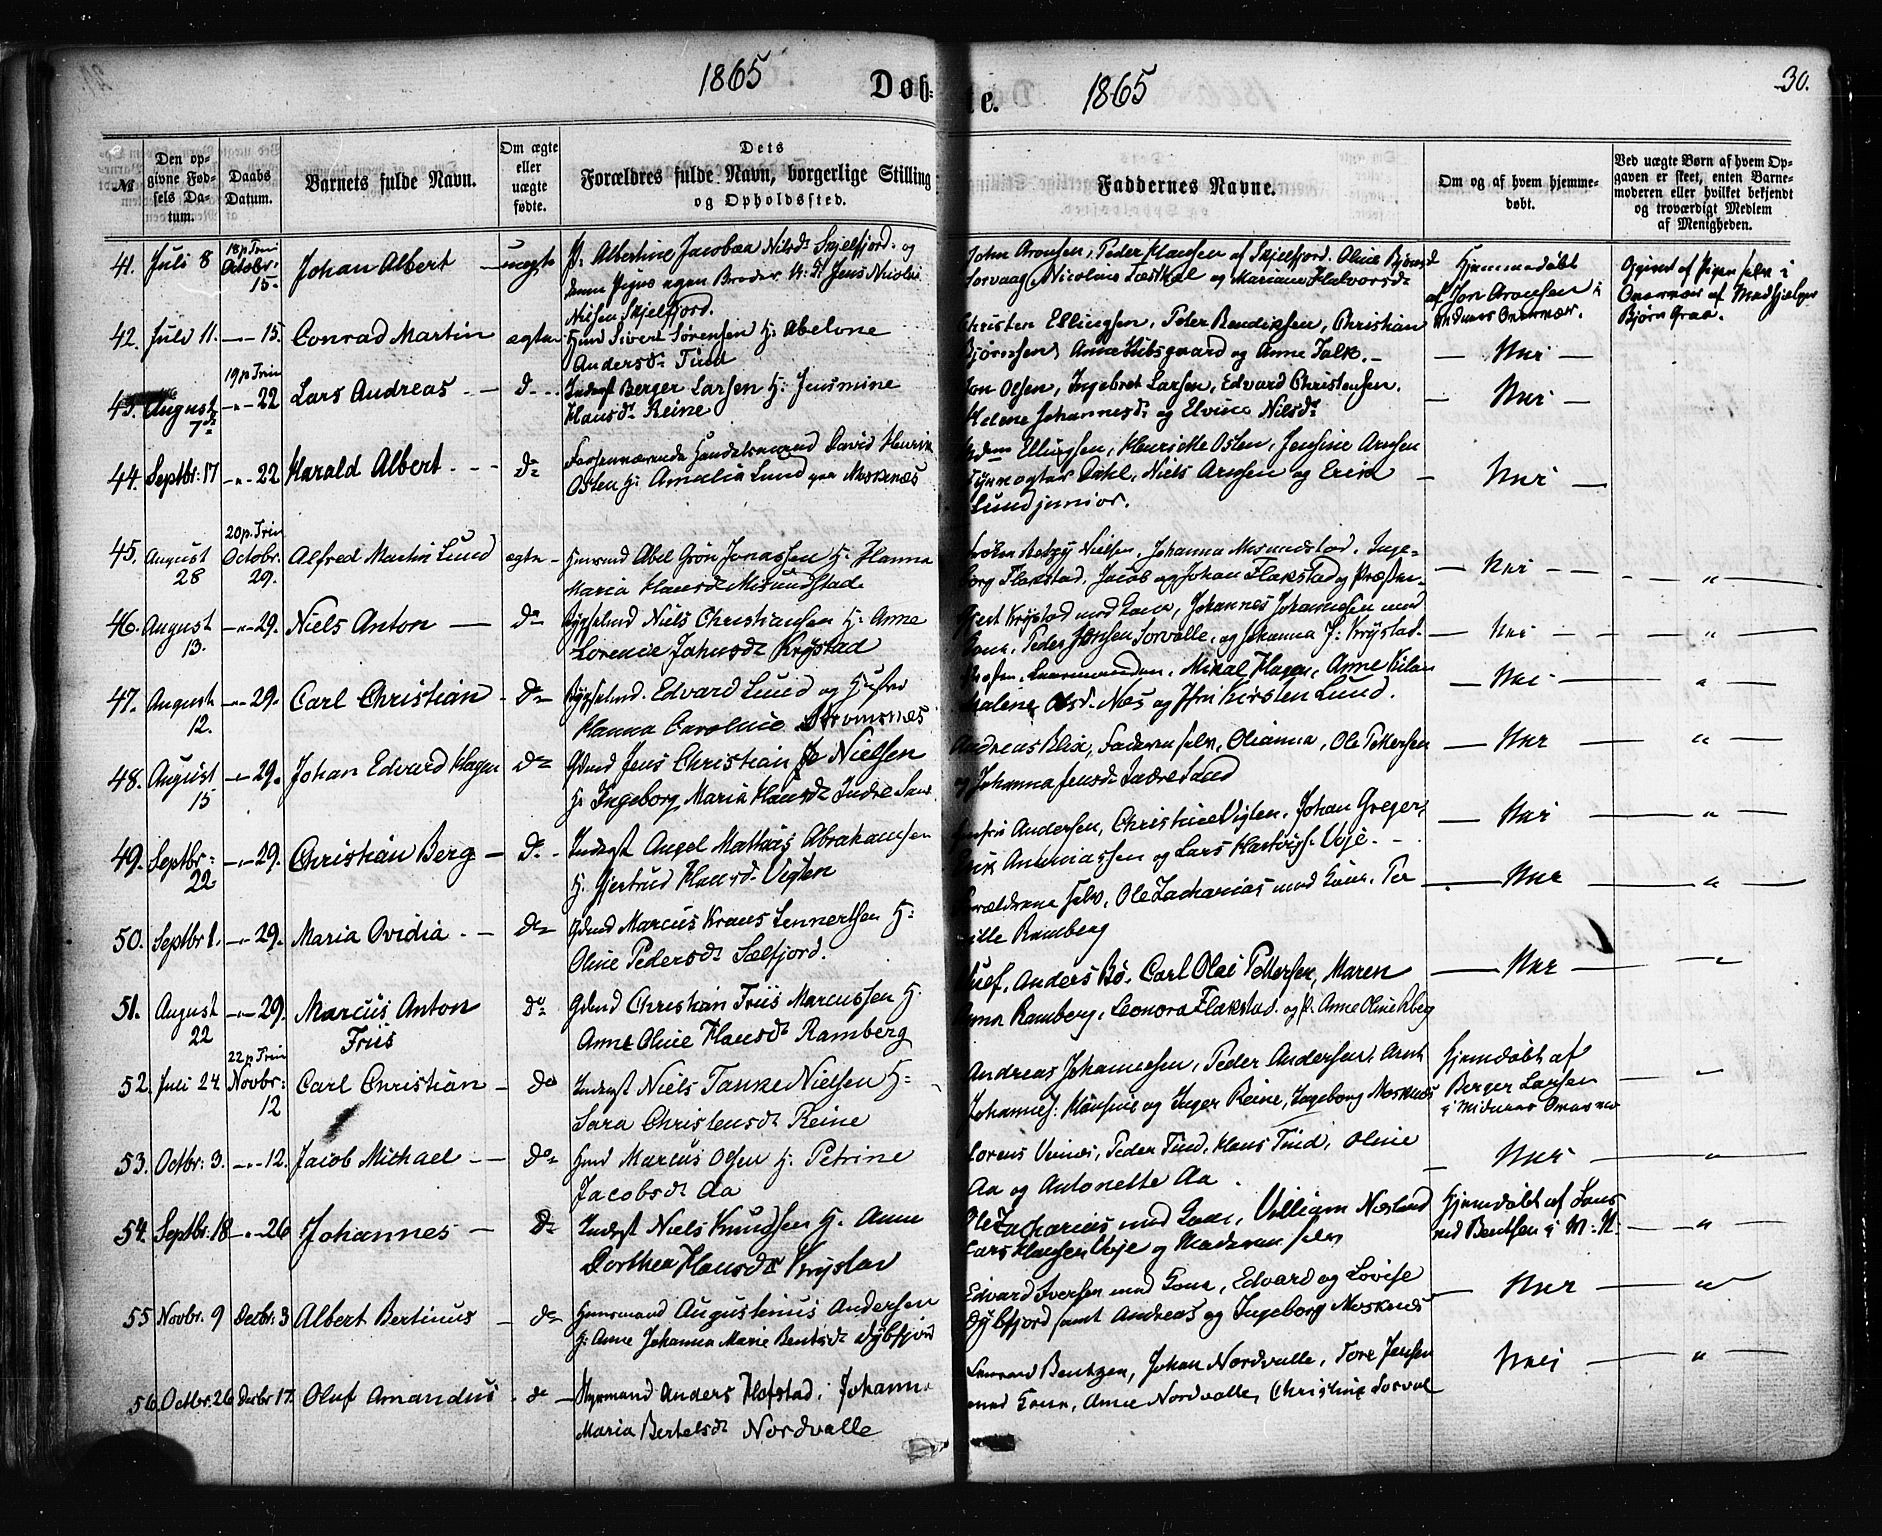 1865
Døb=
te.
1865
30.
№
Den op-
givne Fød-
sels Da-
tum.
Daabs
Datum.
Barnets fulde Navn.
Om ægte
eller
uægte
fødte.
Dets
Forældres fulde Navn, borgerlige Stilling
og Opholdssted.
Faddernes Navne.
Om og af hvem hjemme-
døbt.
Ved uægte Børn af hvem Op-
gaven er skeet, enten Barne-
moderen eller hvilket bekjendt
og troværdigt Medlem
af Menigheden.
41. Juli 8
18 p Trin
Octobr.
15.
Johan Albert — uægte
P: Albertine Jacobæa Nilsdr Skjelfjord. og
dennes Piges egen Broder U: K Jens Nicolai
Nilsen Skjelfjord.
John Aronsen, Peder Hansen af Skjelfjord. Oline Bjørnsd
Sorvaag, Nicoline og Mariane Halvorsdr
Hjemmedøbt
af Jon Aronsen i
Øvernær.
Opgivet af Pigen selv i
Overvær af Medhjelper
Bjørn Graa.
42. Juli 11. —"— 15. Conrad Martin ægte
Hmd Sivert Sørensen H: Abelone
Andersdr Tind
Christen Ellingsen, Peter Bendiksen, Christian
Bjørnsen, Anne og Anne Falk. —
— Nei —
43. August
7de
19 p Trin
—"— 22 Lars Andreas — D —
Inderst Berger Larsen H: Jensmine
Hansdr Reine
Jon Olsen, Ingebret Larsen, Edvard Christensen.
Helene Johannesdr og Elvine Nilsdr
— Nei —
44. Septbr: 17 —"— 22 Harald Albert — Do
Forhenværende Handelsmand David Henrik
Osten H: Amalia Lund paa Moskenæs
Ellingsen, Henrikke Osten, Jensine Arnsen
Dahl, Niels Arnsen og Erik
Lund junior.
— Nei —
45. August
28
20 p. Trin
Octobr.
29.
Alfred Martin Lund ægte —
Hmand Abel Grøn Jonassen H: Hanna
Maria Hansdr Misundstad
Nielsen, Johanna Misundstad. Inge-
borg Flakstad, Jacob og Johan Flakstad og Præsten.
— Nei — — "
46. August
13.
—"— 29. Niels Anton — Do
Bygselmd Niels Christiansen H: Anne
Lorence Johnsdr Krystad
Krystad med Kone, Johannes Johannesen med
Kone, Peder Jørgensen Sorvalle, og Johanna J: Krystad.
— Nei — — "
47. August
12.
—"— 29. Carl Christian — Do
Bygselmd. Edvard Lund og Hustru
Hanna Caroline Strømsnæs
Lensmanden, Mikal Hagen, Anne
Malene Olsd. Næs og Jfri Kirsten Lund.
— Nei — "
48. August
15
—"— 29. Johan Edvard Hagen Do
Gdmd Jens Christian Nielsen
H: Ingeborg Maria Hansdr Indre San
Andreas Blix, Faderen selv, Olianna, Ole Pettersen
og Johanna Jensdr Indresand
— Nei — "
49. Septbr:
22
—"— 29. Christian Berg — Do
Inderst Angel Mathias Abrahamsen
H: Gjertrud Hansd. Vigten
Andersen, Christine Vigten, Johan Greger,
Ananiassen og Lars Hartvigs. Voje. —
— Nei — "
50. Septbr 1. —"— 29. Maria Ovidia. — Do
Gdmd Marcus Kraus Lennertsen H:
Oline Pedersdr Sælfjord.
Forældrene selv, Ole Zacharias med Kone, Per
Ramberg
— Nei — "
51. August
22
—"— 29. Marcus Anton
Friis
Do
Gdmd Christian Friis Marcussen H:
Anne Oline Hansdr Ramberg
Anders Bø. Carl Olai Pettersen, Maren
Anna Ramberg, Leonora Flakstad. og P. Anne Oline Rberg
— Nei — "
52. Juli 24.
22 p Trin
Novbr:
12
Carl Christian — Do
Inderst Niels Tanke Nielsen H:
Sara Christensdr Reine
Andreas Johannesen, Peder Andersen, Arnt
Johannes: Hansine og Inger Reine, Ingeborg Moskenæs
Hjemdøbt af
Berger Larsen
i Overvær
— "
53. Octbr: 3. —"— 12. Jacob Michael — Do
Hmd Marcus Olsen H: Petrine
Jacobsdr Aa
Lorens Peder Tind, Hans Tind, Oline
Aa og Antonette Aa.
— Nei — "
54. Septbr: 18 —"— 26 Johannes — Do
Inderst Niels Knudsen H. Anne
Dorthea Hansdr Krystad
Ole Zacharias med Kone, Villiam Næsland
Lars Hansen Voje og Moderen selv
Hjemdøbt af Lens
md Bentsen i M: N.
— "
55 Novbr. 9 Decbr: 3 Albert Bertinus — Do
Huusmand Augustinus Andersen
H: Anne Johanna Marie Bentsdr Dybfjord
Edvard Iversen med Kone, Edvard og Lovise
Dybfjord samt Andreas og Ingeborg Moskenæs
— Nei — "
56. Octbr. 26 Decbr 17. Oluf Amandus — do —
Anders Hofstad, Johanna
Maria Bertelsdr Nordvalle
Lensmand Bentzen, Johan Nordvalle, Tore Jensen
med Kone, Anne Nordvalle, Christine Sorval
Nei — "